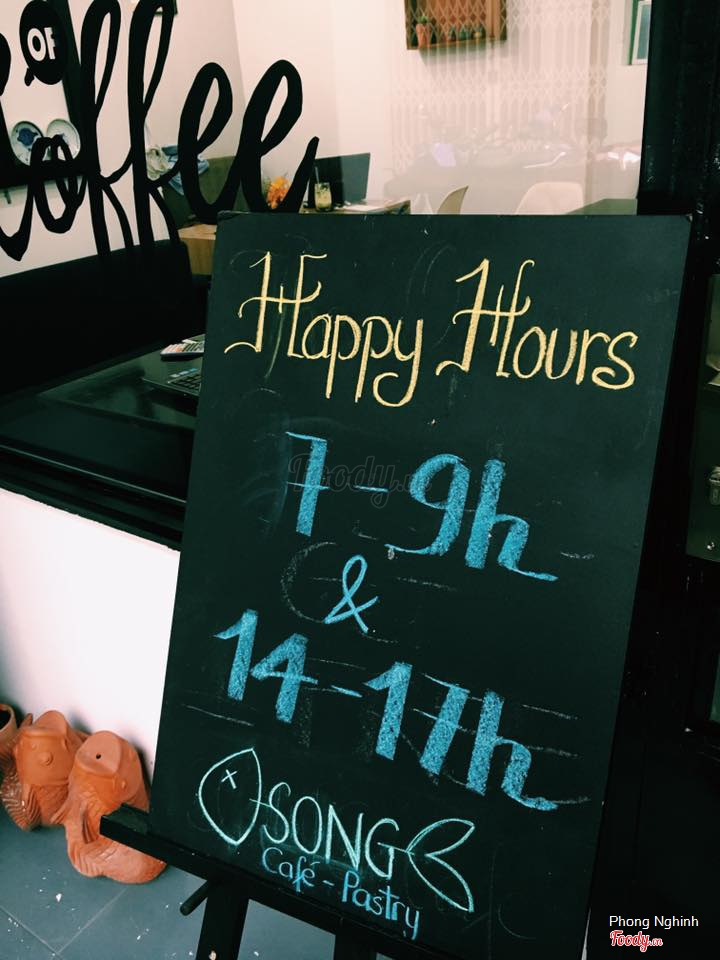 OF
Coffee
Happy Hours
7-9h
&
14-17h
SONG
Café - Pastry
Foody.vn
Phong Nghinh
Foody.vn